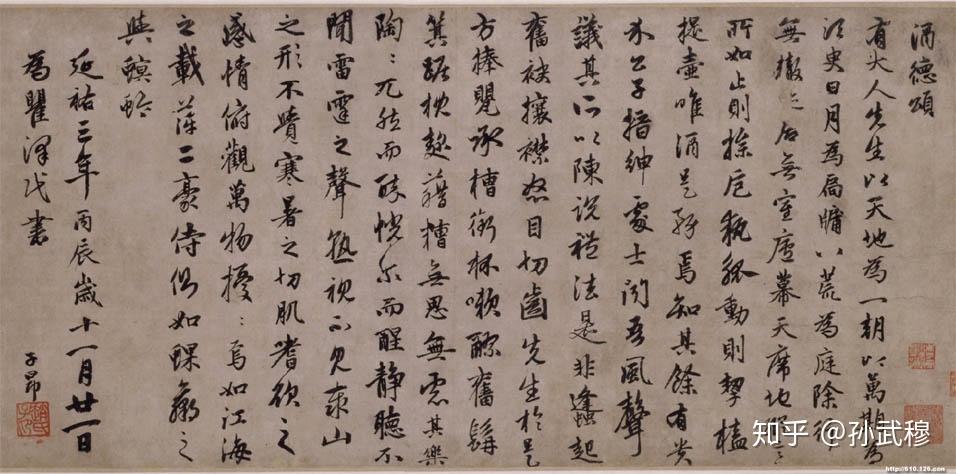 酒德頌
有大人先生以天地為一朝以萬期為
須臾日月為扃牖八荒為庭除行
無轍迹居無室廬幕天席地縱意
所如止則操卮執觚動則挈榼
提壺唯酒是務焉知其餘有貴
介公子搢紳處士聞吾風聲
議其所以陳說禮法是非蠭起
奮袂攘襟怒目切齒先生於是
方捧甖承槽銜杯漱醪奮髯
箕踞枕麴藉糟無思無慮其樂
陶〻兀然而醉恍尔而醒静聽不
聞雷霆之聲熟視不見泰山
之形不覺寒暑之切肌嗜欲之
感情俯觀萬物擾〻焉如江海
之載萍二豪侍側如蜾蠃之
與螟蛉
延祐三年丙辰歲十一月廿一日
為瞿澤民書
子昂
知乎 @孙武穆
http://610.126.com